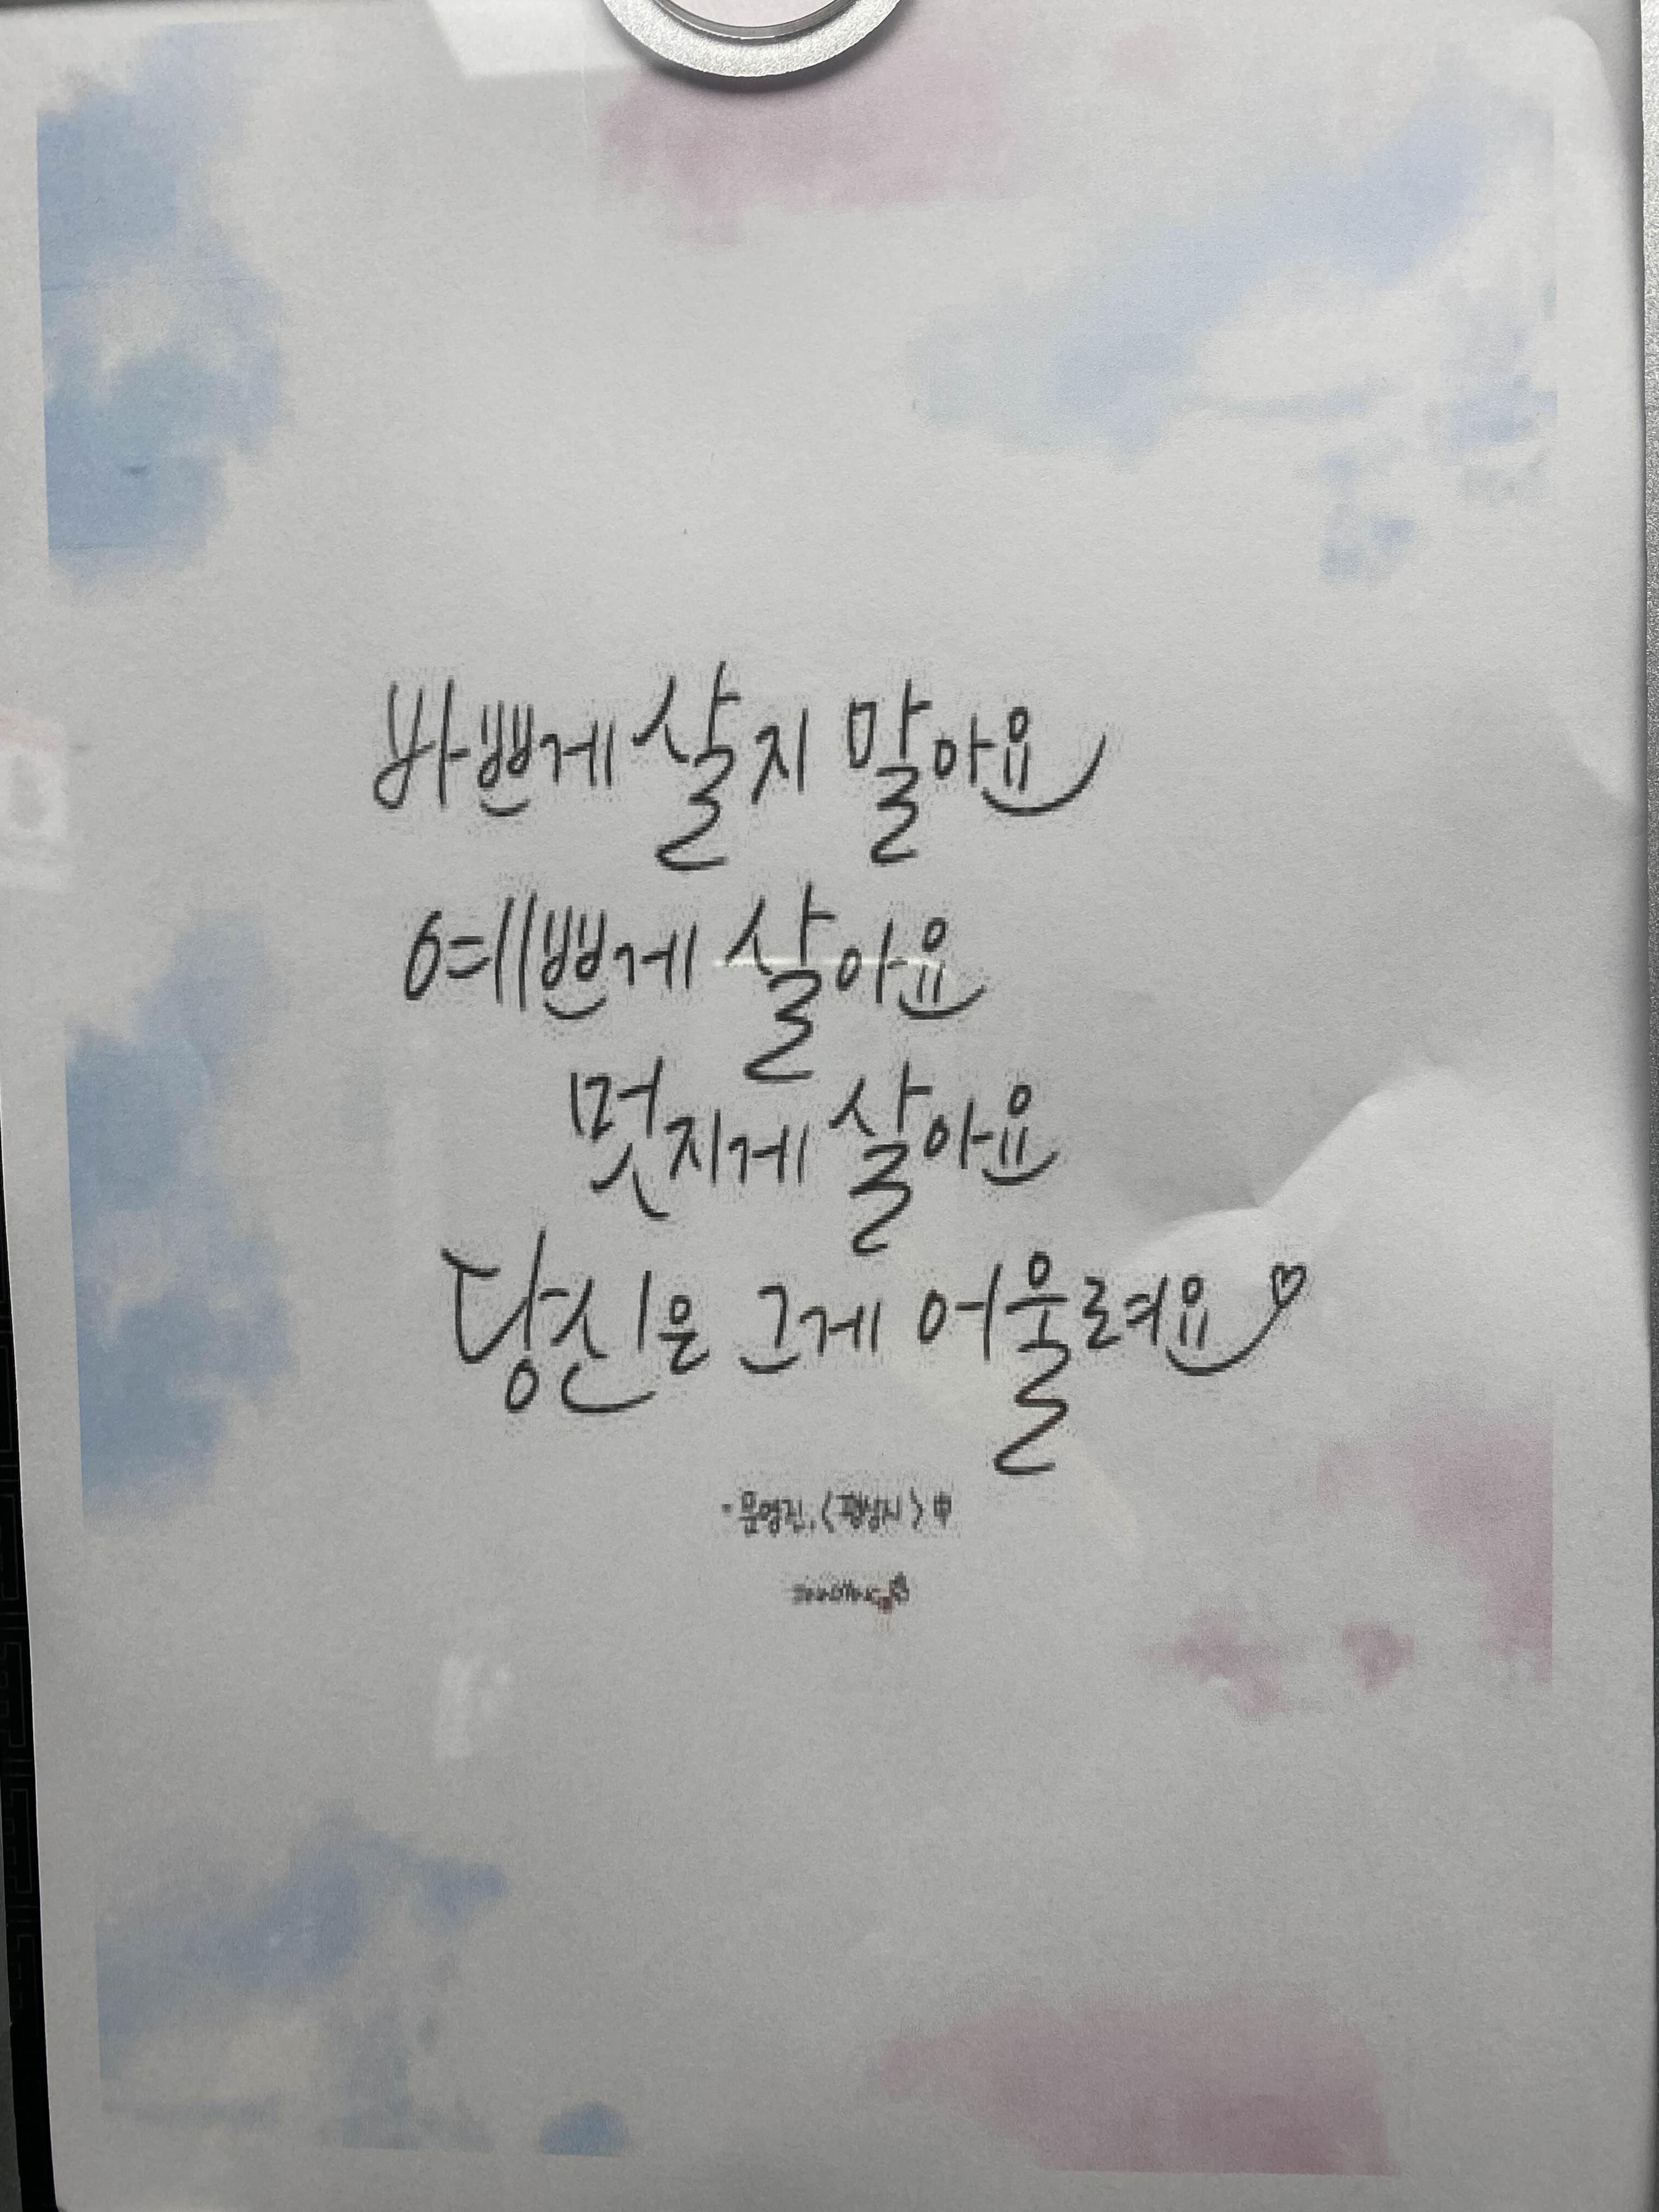 바쁘게 살지 말아요
예쁘게 살아요
멋지게 살아요
당신은 그게 어울려요♡
- 문영진, 〈평상시〉 中